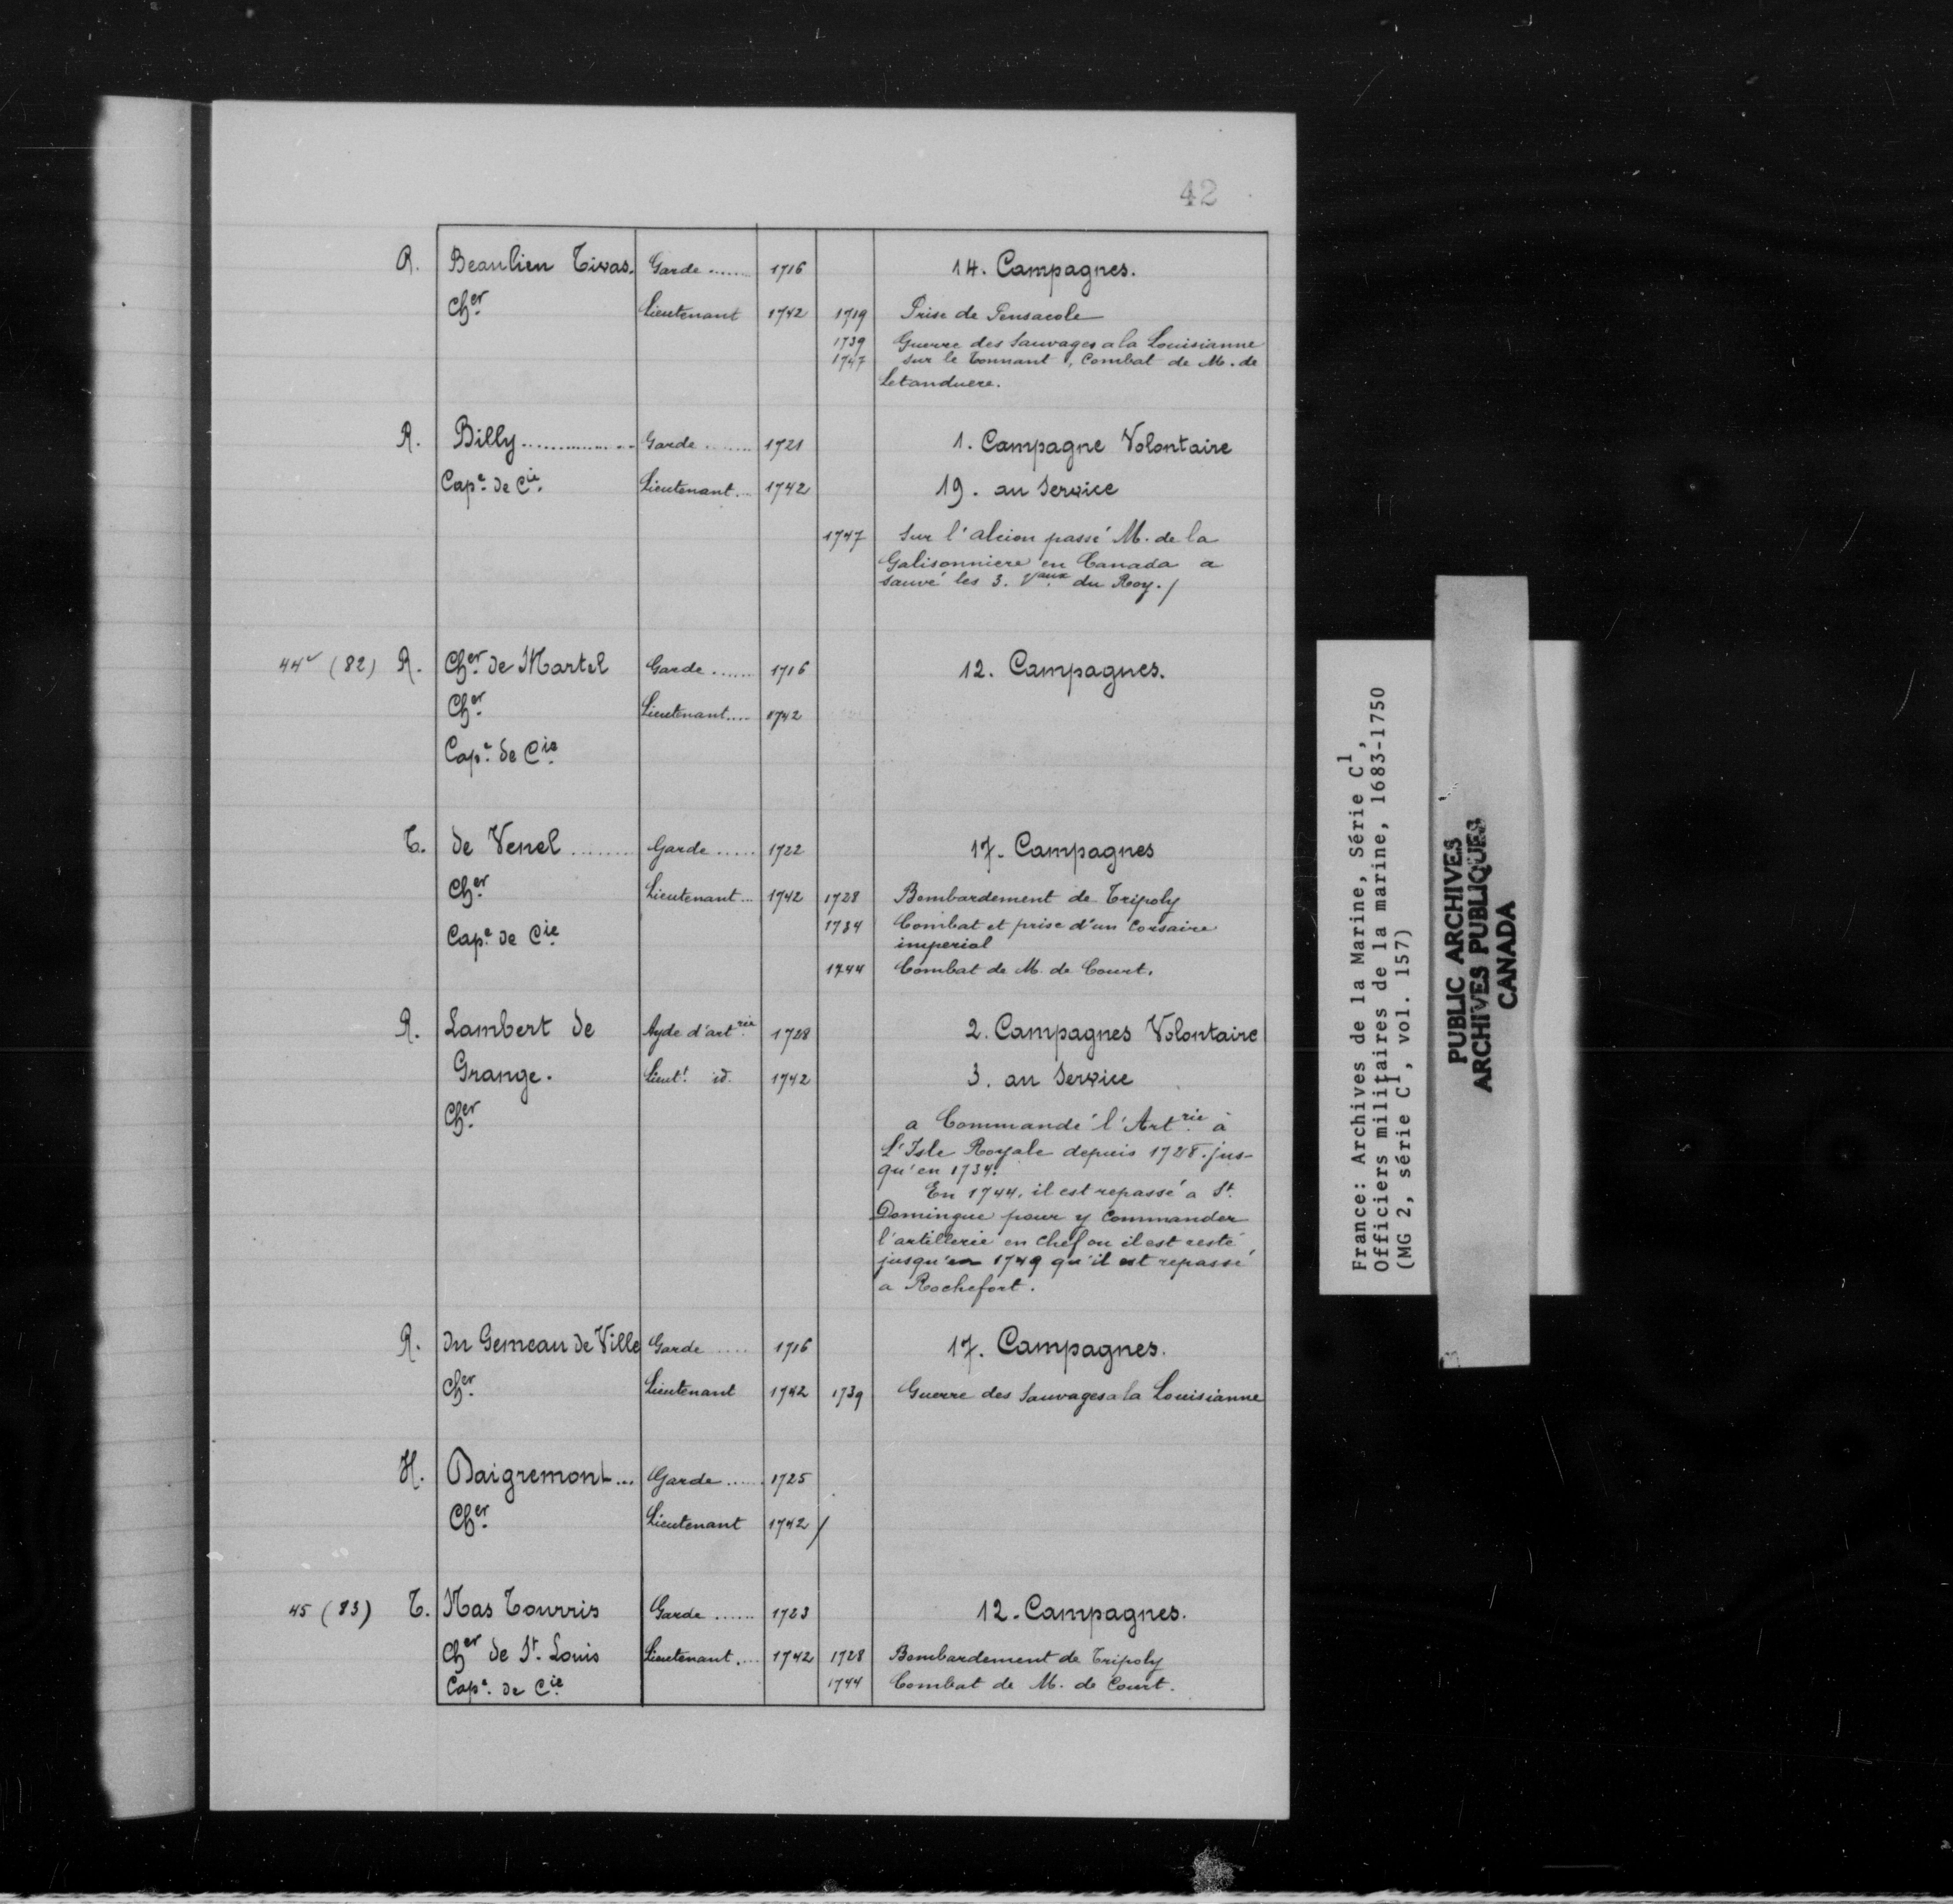 42
R. Beaulieu Tivas. Garde ....... 1716 14. Campagnes.
Cher. Lieutenant 1742 1719 Prise de Pensacole
1739 Guerre des Sauvages a la Louisianne
1747 sur le Tonnant, Combat de M. de
Letanduere.
R. Billy ................ Garde ........ 1721 1. Campagne Volontaire
Cape. de Cie. Lieutenant... 1742 19. au Service
1747 Sur l'alcion passé M. de la
Galisonniere en Canada a
sauvé les 3. Vaux du Roy. /
44v (82) R. Cher. de Martel Garde ....... 1716 12. Campagnes.
Cher. Lieutenant.... 1742
Cape. de Cie
T. de Venel ......... Garde ..... 1722 17. Campagnes
Cher Lieutenant... 1742 1728 Bombardement de Tripoly
Cape. de Cie 1734 Combat et prise d'un Corsaire
imperial
1744 Combat de M. de Court.
R. Lambert de Ayde d'artrie 1728 2. Campagnes Volontaire
Grange. Lieutt. id. 1742 3. au Service
Cher.
a Commandé l'Artrie à
L'Isle Royale depuis 1728. jus-
qu'en 1734.
En 1744. il est repassé a St.
Domingue pour y Commander
l'artillerie en chef ou il est resté
jusqu'en 1749 qu'il est repassé
a Rochefort.
R. du Gemeau de Ville Garde ..... 1716 17. Campagnes.
Cher. Lieutenant 1742 1739 Guerre des Sauvages a la Louisianne
H. Daigremont... Garde ...... 1725
Cher. Lieutenant 1742 /
45 (83) T. Mas Tourris Garde ....... 1723 12. Campagnes.
Cher de St. Louis Lieutenant.... 1742 1728 Bombardement de Tripoly
Cape. de Cie 1744 Combat de M. de Court.
France: Archives de la Marine, Série C1,
Officiers militaires de la marine, 1683-1750
(MG 2, série C1, vol. 157)
PUBLIC ARCHIVES
ARCHIVES PUBLIQUES
CANADA